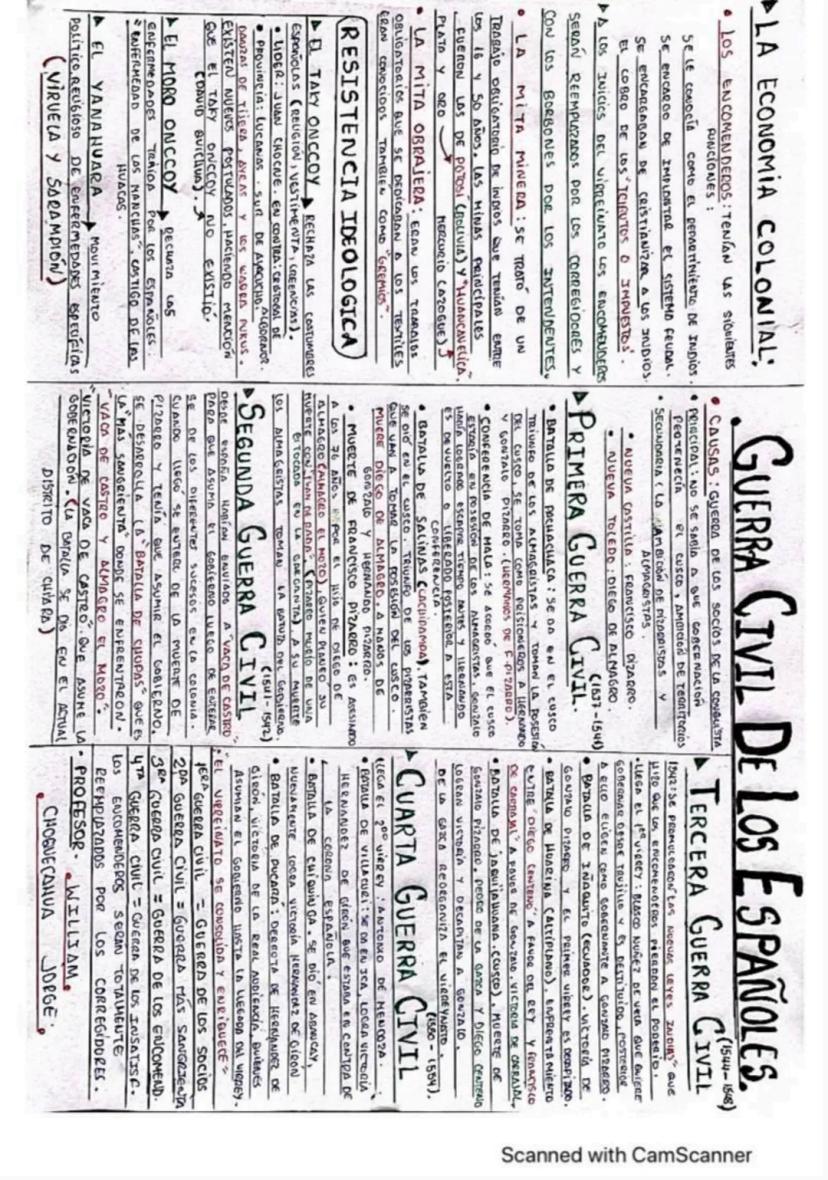 GUERRA CIVIL DE LOS ESPAÑOLES.
▶ LA ECONOMIA COLONIAL:
• LOS ENCOMENDEROS: TENÍAN LAS SIGUIENTES
FUNCIONES:
SE LE CONOCÍA COMO EL REPARTIMIENTO DE INDIOS.
SE ENCARGO DE IMPLANTAR EL SISTEMA FEUDAL.
SE ENCARGABAN DE CRISTIANIZAR A LOS INDIOS.
EL COBRO DE LOS "TRIBUTOS O IMPUESTOS".
▶ A LOS INICIOS DEL VIRREINATO LOS ENCOMENDEROS
SERÁN REEMPLAZADOS POR LOS CORREGIDORES Y
CON LOS BORBONES POR LOS INTENDENTES.
• LA MITA MINERA: SE TRATÓ DE UN
TRABAJO OBLIGATORIO DE INDIOS QUE TENÍAN ENTRE
LOS 16 Y 50 AÑOS. LAS MINAS PRINCIPALES
FUERON LAS DE POTOSÍ (BOLIVIA) Y "HUANCAVELICA".
PLATA Y ORO MERCURIO (AZOGUE)
• LA MITA OBRAJERA: ERAN LOS TRABAJOS
OBLIGATORIOS QUE SE DEDICABAN A LOS TEXTILES
ERAN CONOCIDOS TAMBIEN COMO "GREMIOS".
RESISTENCIA IDEOLOGICA
▶ EL TAKY ONCCOY ▶ RECHAZA LAS COSTUMBRES
ESPAÑOLAS (RELIGION, VESTIMENTA, CREENCIAS).
• LIDER: JUAN CHOCNE. EN CONTRA: CRISTOBAL DE
• PROVINCIA: LUCANAS - SUR DE AYACUCHO ALBORNOZ.
DANZAS DE TIJERA, AYLAS Y LOS WAQRA PUKUS.
EXISTEN NUEVOS POSTULADOS HACIENDO MENCIÓN
QUE EL TAKY ONCCOY NO EXISTIÓ.
(DAVID QUICHUA).
▶ EL MORO ONCCOY ▶ RECHAZA LAS
ENFERMEDADES TRAIDA POR LOS ESPAÑOLES:
"ENFERMEDAD DE LAS MANCHAS". CASTIGO DE LAS
HUACAS.
▶ EL YANAHUARA ▶ MOVIMIENTO
POLÍTICO RELIGIOSO DE ENFERMEDADES ESPECÍFICAS
(VIRUELA Y SARAMPIÓN)
• CAUSAS: GUERRA DE LOS SOCIOS DE LA CONQUISTA
• PRINCIPAL: NO SE SABÍA A QUE GOBERNACIÓN
PERTENECÍA EL CUSCO, AMBICIÓN DE TERRITORIOS
• SECUNDARIA: LA AMBICIÓN DE PIZARRISTAS Y
ALMAGRISTAS.
• NUEVA CASTILLA: FRANCISCO PIZARRO.
• NUEVA TOLEDO: DIEGO DE ALMAGRO.
▶ PRIMERA GUERRA CIVIL. (1537-1541)
• BATALLA DE PACHACHACA: SE DA EN EL CUSCO
TRIUNFO DE LOS ALMAGRISTAS Y TOMAN LA POSESIÓN
DEL CUSCO, SE TOMA COMO PRISIONEROS A HERNANDO
Y GONZALO PIZARRO. (HERMANOS DE F. PIZARRO).
• CONFERENCIA DE MALA: SE ACORDÓ QUE EL CUSCO
ESTARÍA EN POSESIÓN DE LOS ALMAGRISTAS, GONZALO
HABÍA LOGRADO ESCAPAR TIEMPO ANTES Y HERNANDO
ES DEVUELTO O LIBERADO POSTERIOR A ESTA
CONFERENCIA.
• BATALLA DE SALINAS (CACHIPAMPA), TAMBIEN
SE DIÓ EN EL CUSCO, TRIUNFO DE LOS PIZARRISTAS
QUE VAN A TOMAR LA POSESIÓN DEL CUSCO.
MUERE DIEGO DE ALMAGRO, A MANOS DE
GONZALO Y HERNANDO PIZARRO.
• MUERTE DE FRANCISCO PIZARRO: ES ASESINADO
A LOS 76 AÑOS POR EL HIJO DE DIEGO DE
ALMAGRO (ALMAGRO EL MOZO), QUIEN PLANEO SU
MUERTE CON "JUAN DE RADA" (PIZARRO MURIÓ DE UNA
ESTOCADA EN LA GARGANTA) A SU MUERTE
LOS ALMAGRISTAS TOMAN LA BATUTA DEL GOBIERNO.
▶ SEGUNDA GUERRA CIVIL (1541-1542)
DESDE ESPAÑA HABÍAN ENVIADOS A "VACA DE CASTRO"
PARA QUE ASUMA EL GOBIERNO LUEGO DE ENTERAR
SE DE LOS DIFERENTES SUCESOS EN LA COLONIA.
CUANDO LLEGÓ SE ENTERÓ DE LA MUERTE DE
PIZARRO Y TENÍA QUE ASUMIR EL GOBIERNO.
SE DESARROLLA LA "BATALLA DE CHUPAS" QUE ES
LA "MÁS SANGRIENTA" DONDE SE ENFRENTARON.
"VACA DE CASTRO Y ALMAGRO EL MOZO".
"VICTORIA DE VACA DE CASTRO". QUE ASUME LA
GOBERNACIÓN. (LA BATALLA SE DIO EN EL ACTUAL
DISTRITO DE CHIARA)
▶ TERCERA GUERRA CIVIL (1544-1548)
1542: SE PROMULGARON "LAS NUEVAS LEYES INDIAS" QUE
HIZO QUE LOS ENCOMENDEROS PIERDAN EL PODERIO.
• LLEGA EL 1er VIRREY: BLASCO NUÑEZ DE VELA QUE QUIERE
GOBERNAR DESDE TRUJILLO Y ES DESTITUIDO, POSTERIOR
A ELLO ELIGEN COMO GOBERNANTE A GONZALO PIZARRO.
• BATALLA DE IÑAQUITO (ECUADOR). VICTORIA DE
GONZALO PIZARRO Y EL PRIMER VIRREY ES DECAPITADO.
• BATALLA DE HUARINA (ALTIPLANO), ENFRENTAMIENTO
ENTRE "DIEGO CENTENO" A FAVOR DEL REY Y FRANCISCO
DE CARBAJAL A FAVOR DE GONZALO, VICTORIA DE CARBAJAL.
• BATALLA DE JAQUIJAHUANA (CUSCO), MUERTE DE
GONZALO PIZARRO. PEDRO DE LA GASCA Y DIEGO CENTENO
LOGRAN VICTORIA Y DECAPITAN A GONZALO.
DE LA GASCA REORGANIZA EL VIRREYNATO.
▶ CUARTA GUERRA CIVIL (1550-1554).
LLEGA EL 2do VIRREY: ANTONIO DE MENDOZA.
• BATALLA DE VILLACURÍ: SE DA EN ICA, LOGRA VICTORIA
HERNANDEZ DE GIRÓN QUE ESTABA EN CONTRA DE
LA CORONA ESPAÑOLA.
• BATALLA DE CHUQUINGA. SE DIÓ EN ABANCAY,
NUEVAMENTE LOGRA VICTORIA HERNANDEZ DE GIRON
• BATALLA DE PUCARÁ: DERROTA DE HERNÁNDEZ DE
GIRÓN. VICTORIA DE LA REAL AUDIENCIA. QUIENES
ASUMIAN EL GOBIERNO HASTA LA LLEGADA DEL VIRREY.
"EL VIRREINATO SE CONSOLIDA Y ENRIQUECE"
1ERA GUERRA CIVIL = GUERRA DE LOS SOCIOS
2DRA GUERRA CIVIL = GUERRA MÁS SANGRIENTA
3RA GUERRA CIVIL = GUERRA DE LOS ENCOMEND.
4TA GUERRA CIVIL = GUERRA DE LOS INSATISF.
LOS ENCOMENDEROS SERAN TOTALMENTE
REEMPLAZADOS POR LOS CORREGIDORES.
• PROFESOR. WILLIAM
CHOQUECAHUA JORGE.
Scanned with CamScanner